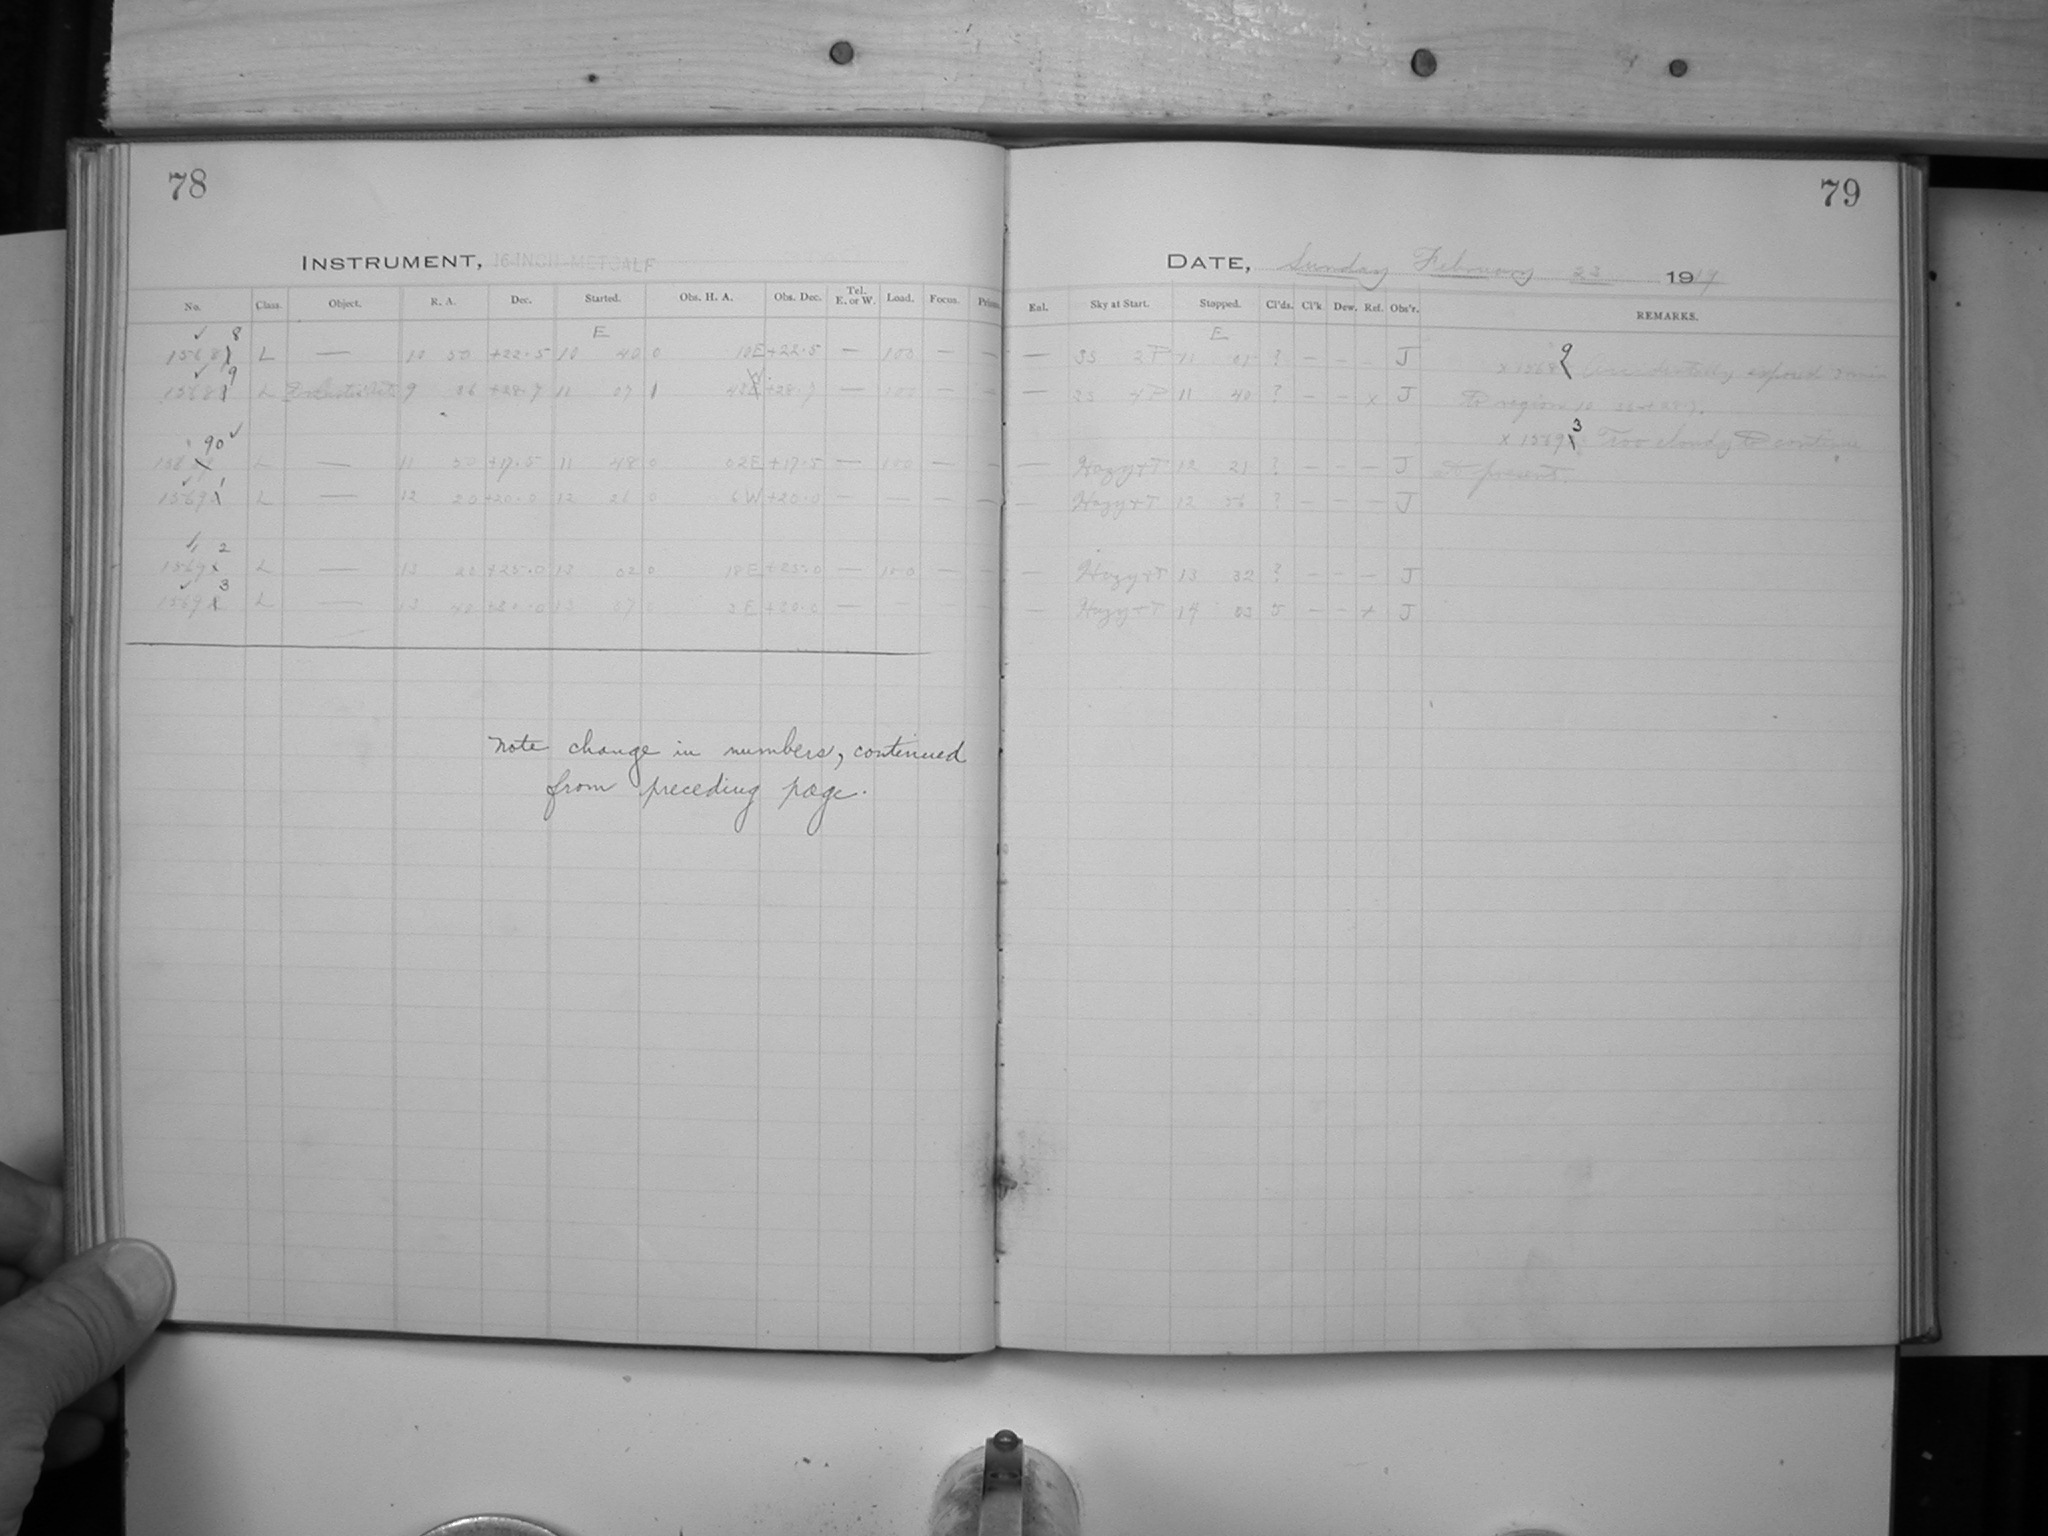 78
INSTRUMENT, 16-INCH METCALF
No. Class. Object. R. A. Dec. Started. Obs. H. A. Obs. Dec. Tel. E. or W. Load. Focus.
8
E
1568 L — 10 50 +22.5 10 40 0 10E +22.5 — 100 — —
9 W
1568 L 9 36 +28.7 11 07 1 +28.7 — 100 — —
90
L — 11 50 +17.5 11 48 0 02E +17.5 — 100 — —
1
1569 L — 12 20 +20.0 12 26 0 6W +20.0 — — — —
2
1569 L — 13 20 +25.0 13 02 0 18E +25.0 — 100 — —
3
1569 L — 13 40 +20.0 13 0 3E +20.0 — — — —
note change in numbers, continued
from preceding page.
79
DATE, Sunday February 23 1919
Eal. Sky at Start. Stopped. Cl'ds. Cl'k Dew. Ref. Obs'r. REMARKS.
E
— 3S 2P 11 01 ? — — — J
— 2S 4P 11 40 ? — — x J
— Hazy+T 12 21 ? — — — J
— Hazy+T 12 56 ? — — — J
— Hazy+T 13 32 ? — — — J
— Hazy+T 14 03 5 — — x J
9
x 1568 Accidentally exposed 2 min
to region 10
3
x 1569 Too cloudy to continue
at present.